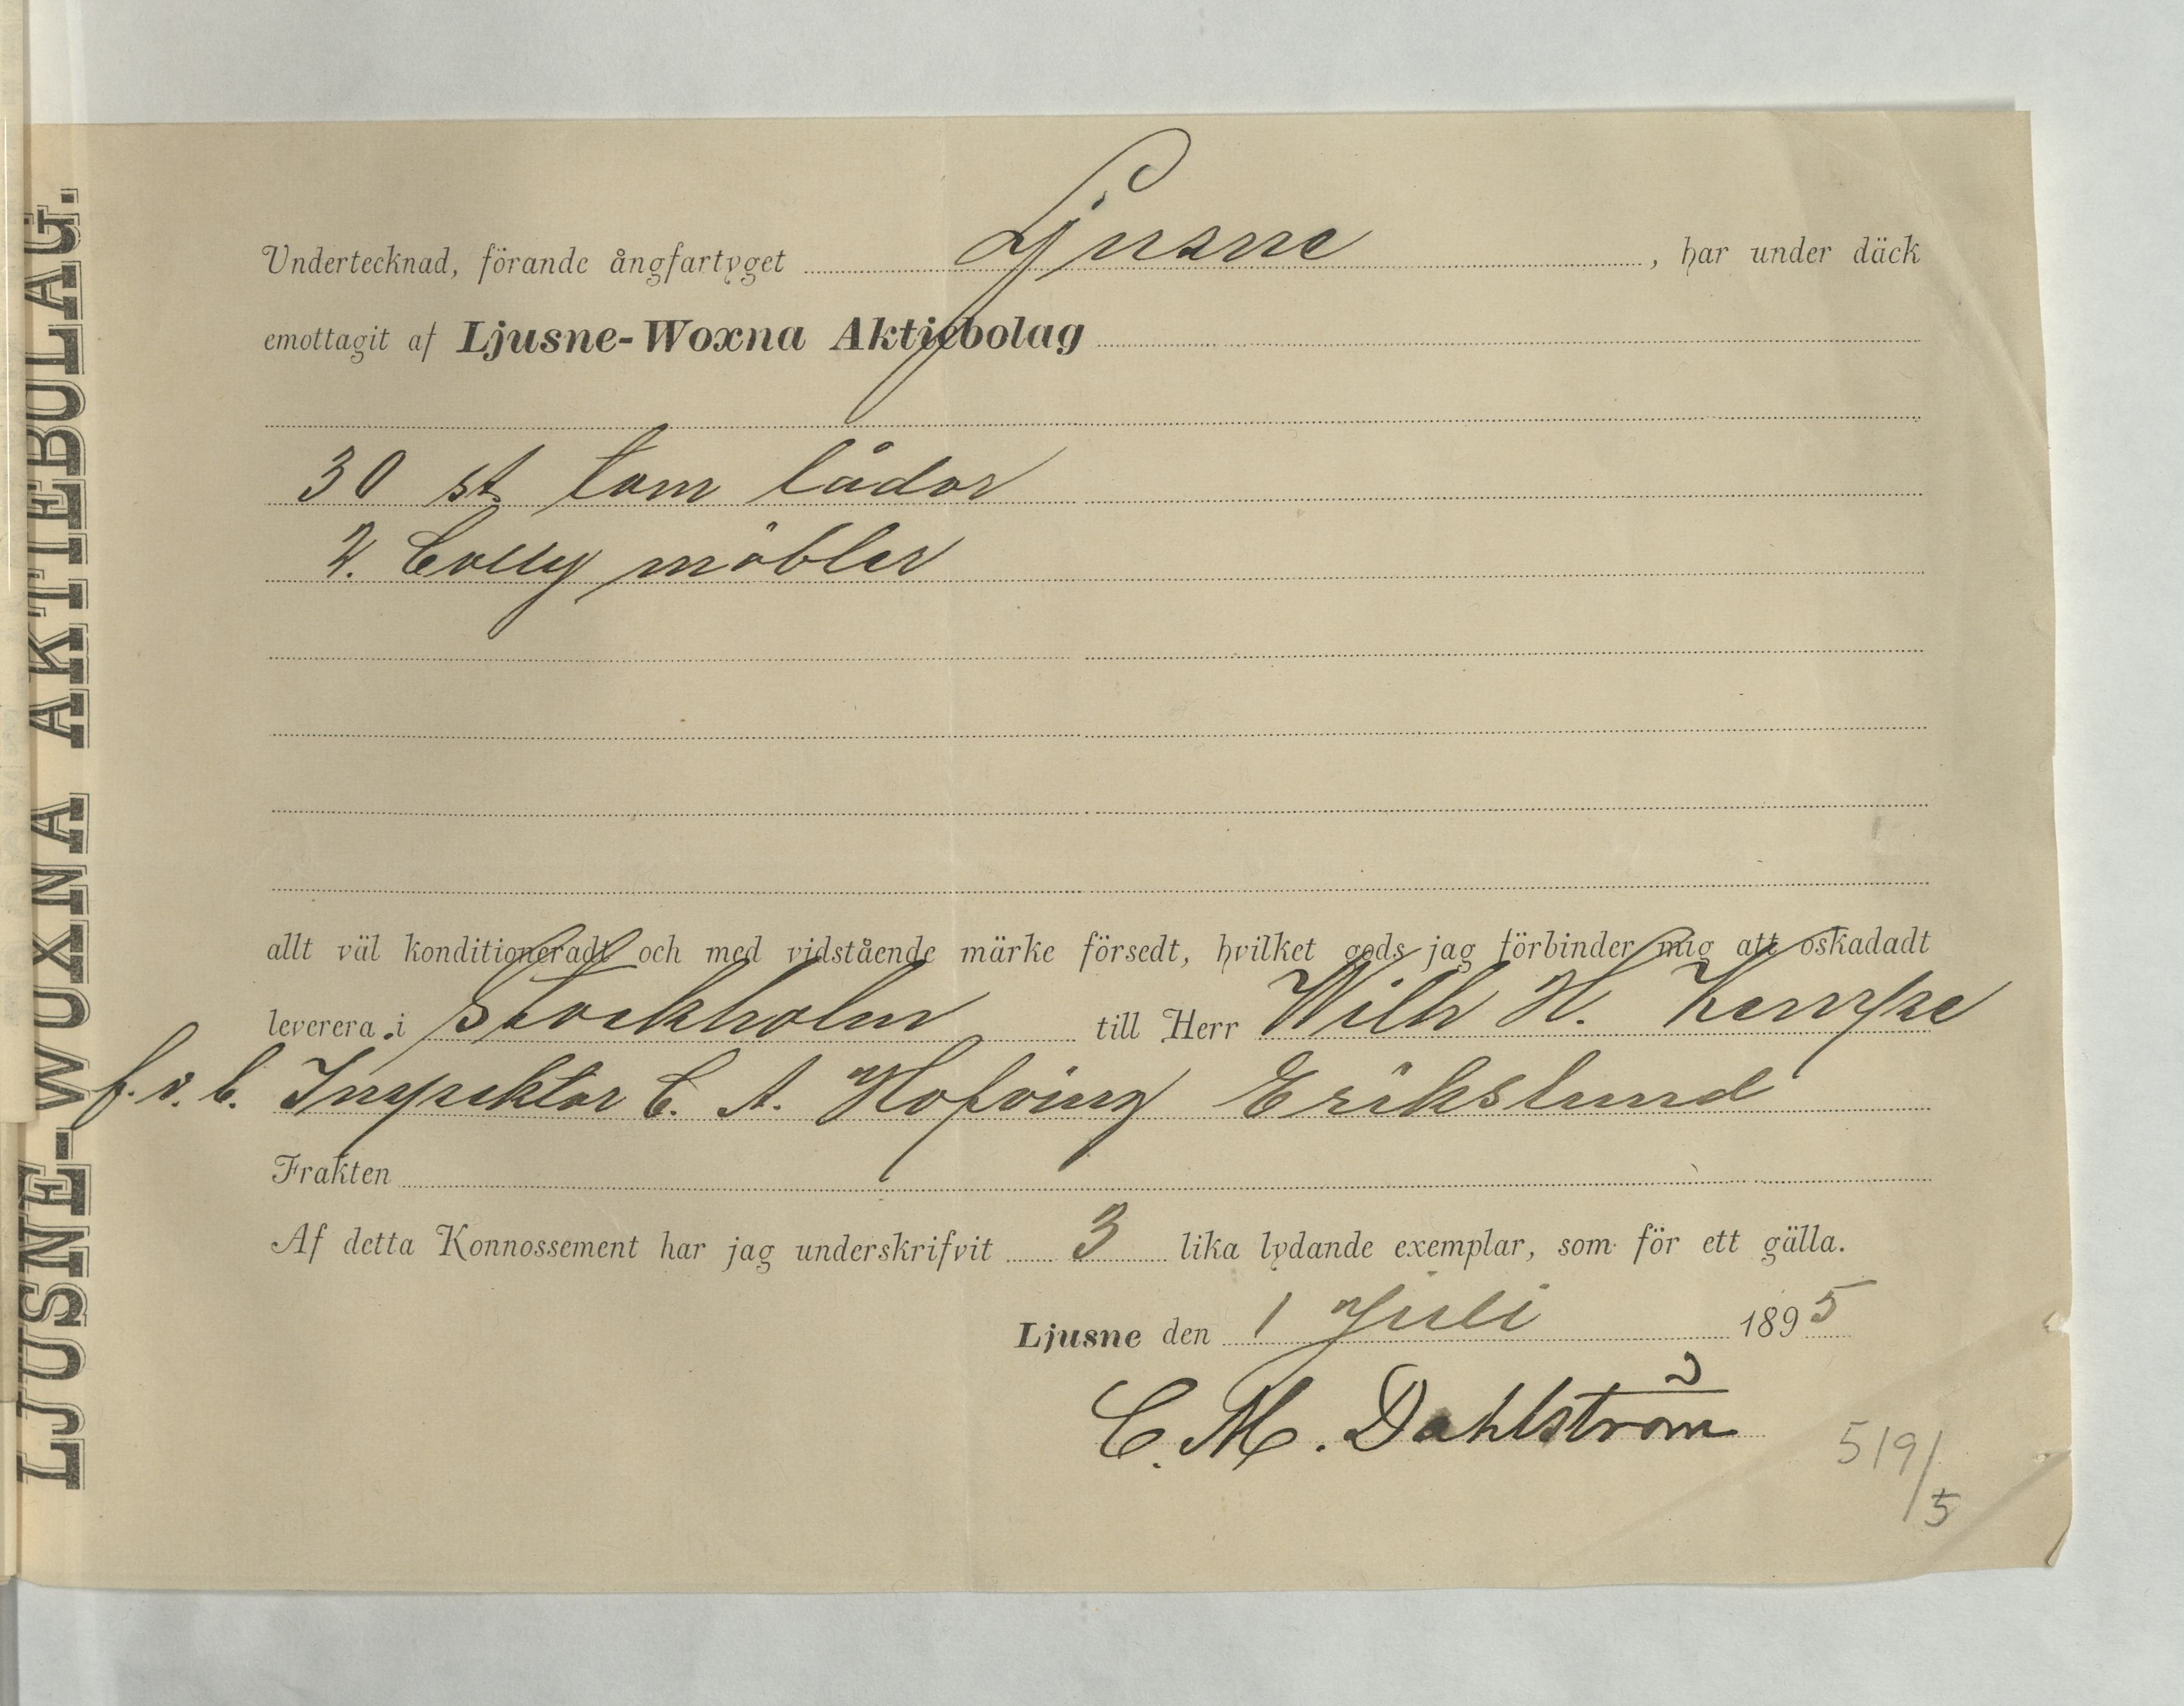 LJUSNE-WOXNA AKTIEBOLAG.
Undertecknad, förande ångfartyget Ljusne, har under däck
emottagit af Ljusne-Woxna Aktiebolag
30 st. tom lådor
2. Colly möbler
allt väl konditioneradt och med vidstående märke försedt, hvilket gods jag förbinder mig att oskadadt
leverera i Stockholm till Herr Wilh H. Kempe
f. v. b. Inspektor C. A. Hofving Erikslund
Frakten
Af detta Konnossement har jag underskrifvit 3 lika lydande exemplar, som för ett gälla.
Ljusne den 1 Juli 1895
C. M. Dahlström
519/5